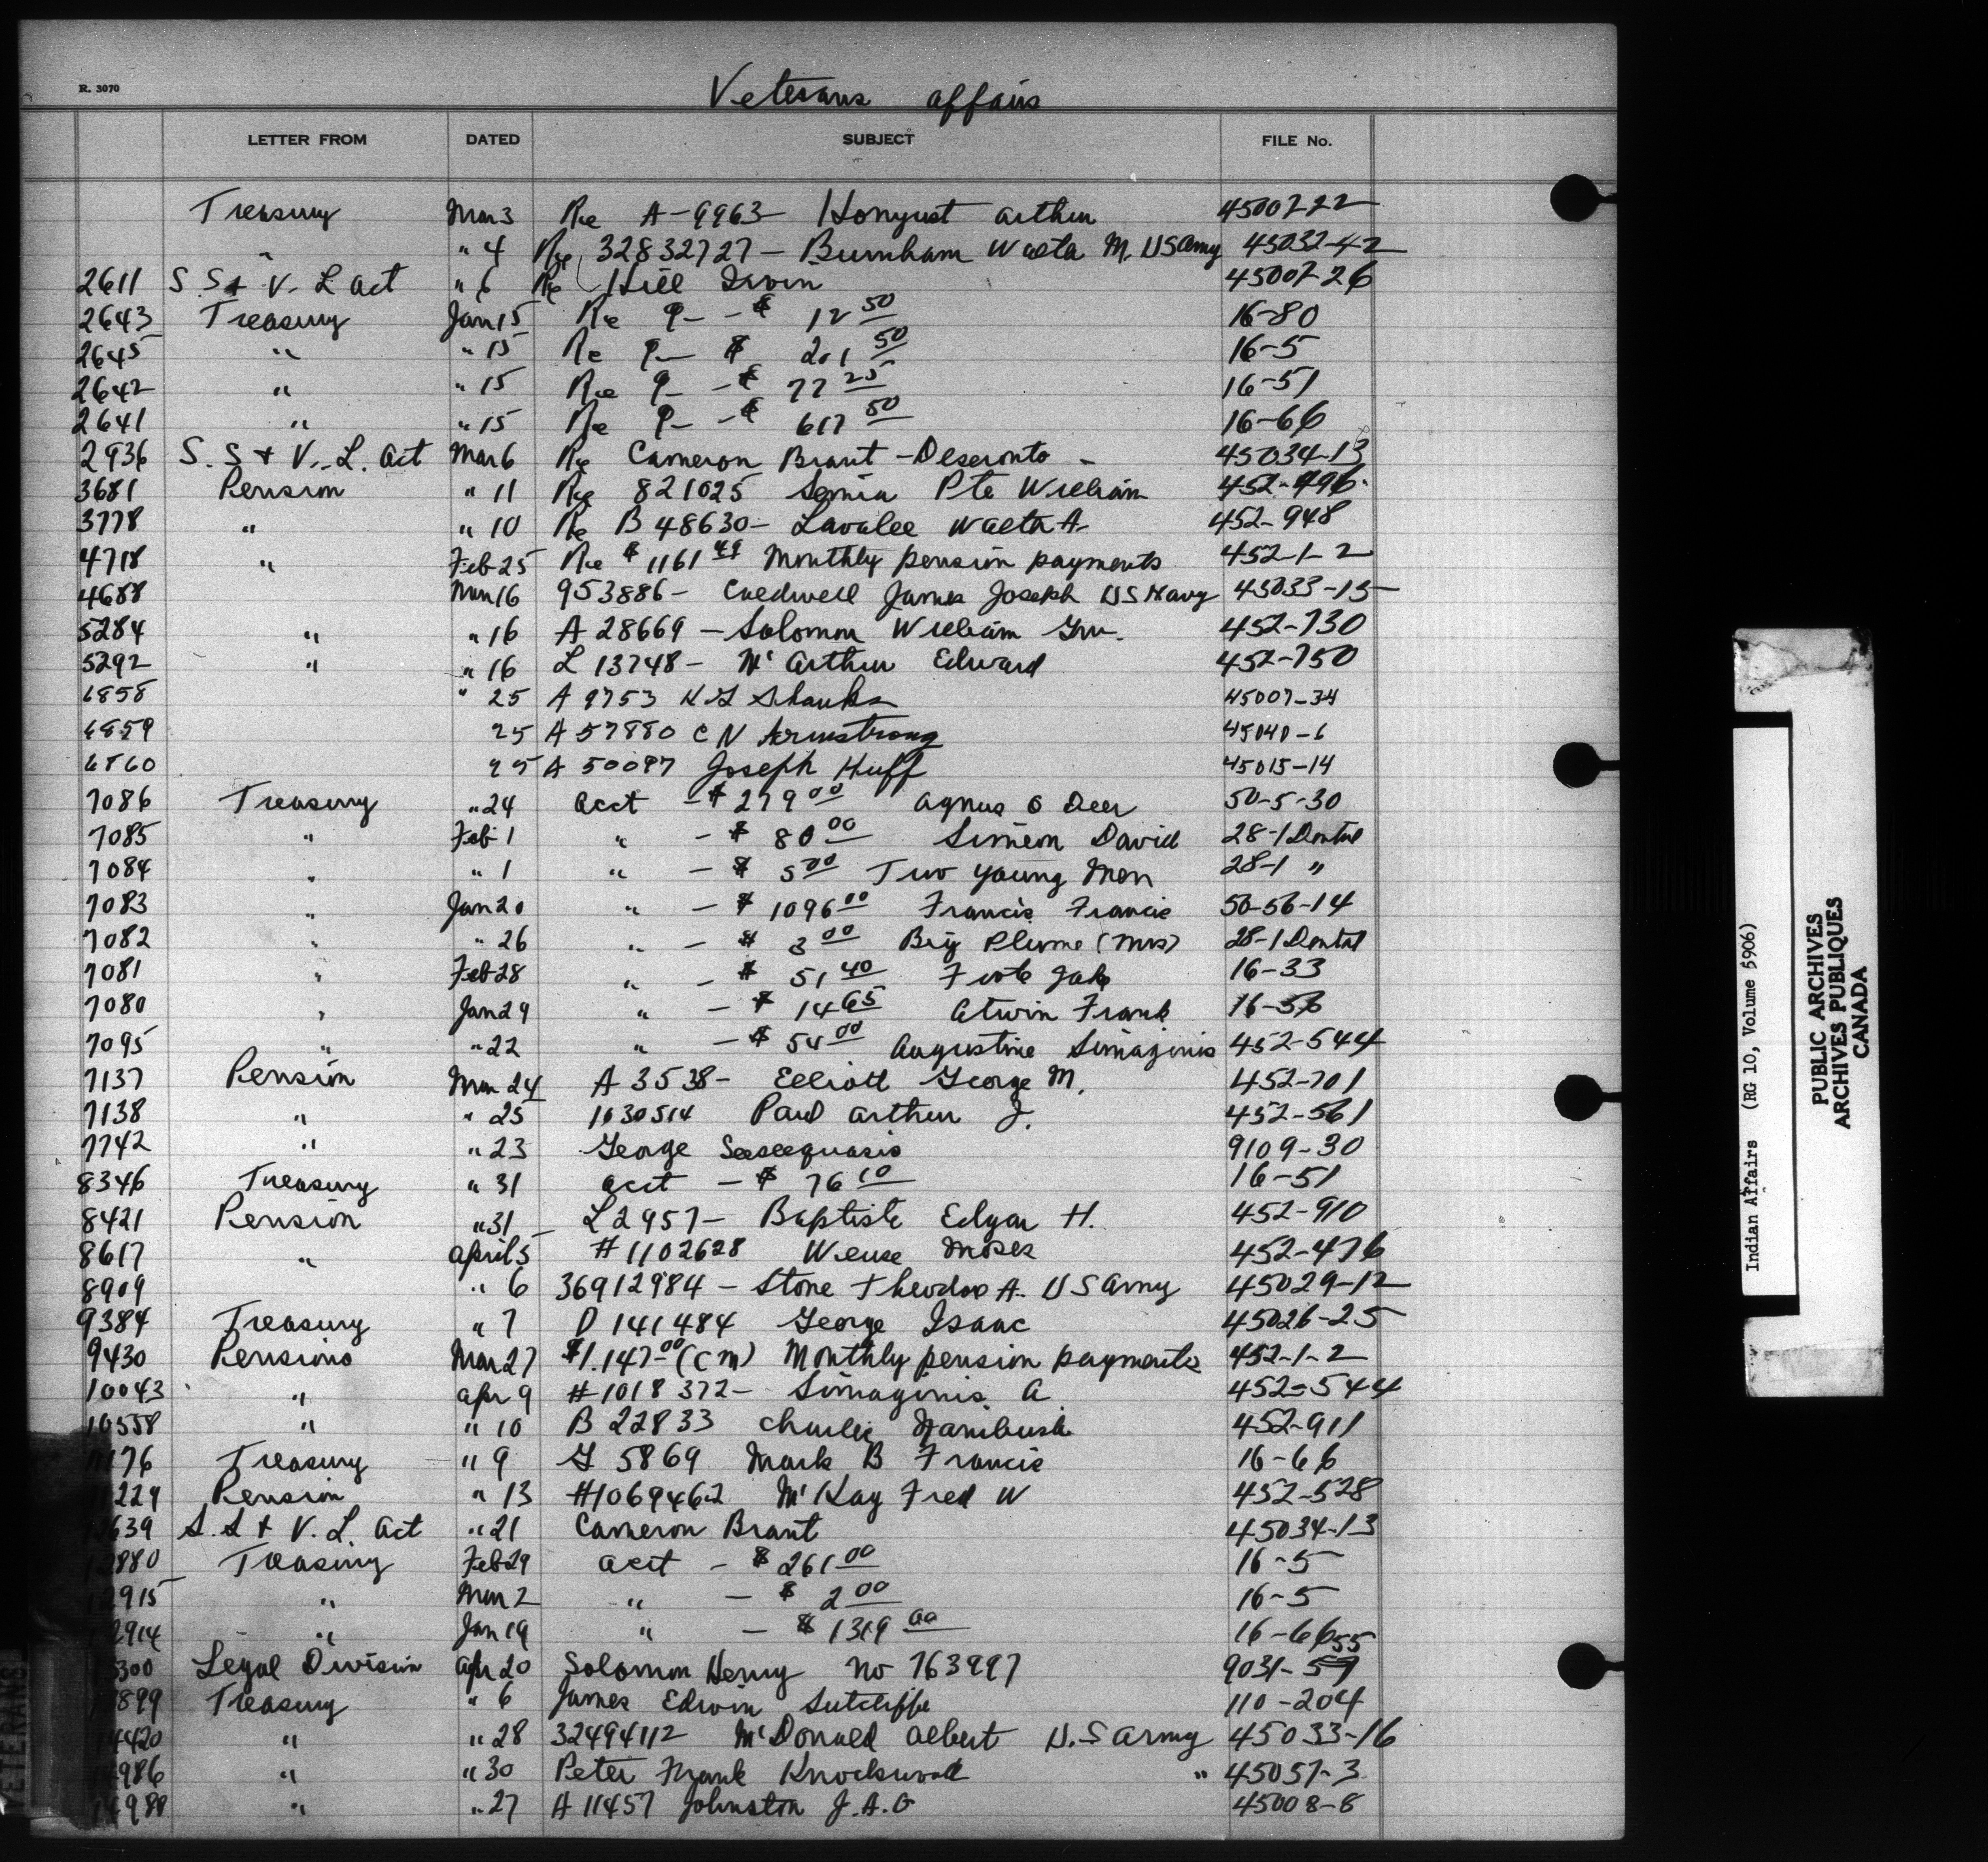 R. 3070
Veterans affairs
LETTER FROM DATED SUBJECT FILE No.
Treasury Mar 3 Re A-9963- Honyust arthur 45007-22
" " 4 Re 32832727- Burnham Wasta M. US army 45032-42
2611 S. S & V. L act " 6 Re Hill Irvin 45007-26
2643 Treasury Jan 15 Re 9- - $ 12 50 16-80
2645 " " 15 Re 9- $ 201 50 16-5
2642 " " 15 Re 9- - $ 77 25 16-51
2641 " " 15 Re 9- - $ 617 50 16-66
2936 S. S & V. L. act Mar 6 Re Cameron Brant - Deseronto - 45034-13
3681 Pension " 11 Re 821025 Semia Pte William 452-996
3778 " " 10 Re B 48630- Lavalee Walter A. 452-948
4718 " Feb 25 Re $ 1161 49 Monthly pension payments 452-1-2
4688 Mar 16 953886- Caldwell James Joseph US Navy 45033-15
5284 " " 16 A 28669 - Solomon William Gnr. 452-730
5292 " " 16 L 13748- Mc Arthur Edward 452-750
6858 " 25 A 9753 H G Shanks 45007-34
6859 25 A 57880 C N Armstrong 45040-6
6860 25 A 50097 Joseph Huff 45015-14
7086 Treasury " 24 acct - $ 279 00 agnus O Deer 50-5-30
7085 " Feb 1 " - $ 80 00 Simeon David 28-1 Dental
7084 " " 1 " - $ 5 00 Two young Men 28-1 "
7083 " Jan 20 " - $ 1096 00 Francis Francis 50-56-14
7082 " " 26 " - $ 3 00 Big Plume (Mrs) 28-1 Dental
7081 " Feb 28 " - $ 51 40 Foote Jake 16-33
7080 " Jan 29 " - $ 14 65 Atwin Frank 16-56
7095 " " 22 " - $ 54 00 Augustine Simaginis 452-544
7137 Pension Mar 24 A 3538- Elliott George M. 452-701
7138 " " 25 1030514 Paul arthur J. 452-561
7742 " " 23 George Seeseequasis 9109-30
8346 Treasury " 31 acct - $ 76 10 16-51
8421 Pension " 31 L 2957- Baptiste Edgar H. 452-910
8617 " april 5 # 1102628 Weuse Moses 452-476
8909 " 6 36912984 - Stone Theodor A. U S army 45029-12
9384 Treasury " 7 D 141484 George Isaac 45026-25
9430 Pensions Mar 27 $1.147 00 (cm) Monthly pension payments 452-1-2
10043 " apr 9 # 1018 372- Simaginis A 452-544
10558 " " 10 B 22833 Charlie Nanibush 452-911
11176 Treasury " 9 G 5869 Mark B Francis 16-66
229 Pension " 13 #1069462 McKay Fred W 452-528
639 S. S & V. L. act " 21 Cameron Brant 45034-13
12880 Treasury Feb 29 acct - $ 261 00 16-5
12915 " Mar 2 " - $ 2 00 16-5
12914 " Jan 19 " - $ 1319 00 16-66
300 Legal Division apr 20 Solomon Henry no 763997 9031-57 55
899 Treasury " 6 James Edwin Sutcliffe 110-204
14420 " " 28 32494112 McDonald albert U.S army 45033-16
14986 " " 30 Peter Frank Knockwood " 45057-3
14988 " " 27 A 11457 Johnston J. A. G 45008-8
VETERANS
Indian Affairs (RG 10, Volume 5906)
PUBLIC ARCHIVES
ARCHIVES PUBLIQUES
CANADA